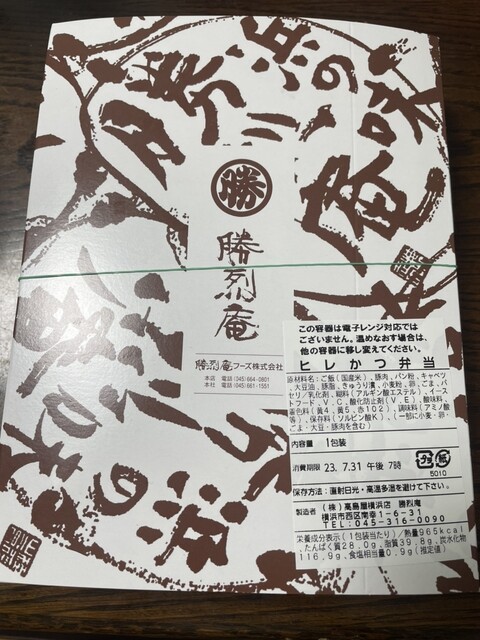 浜の
味
勝
勝烈庵
勝烈庵フーズ株式会社
本店 電話 (045) 664-0801
本社 電話 (045) 661-1551
この容器は電子レンジ対応では
ございません。温めなおす場合は、
他の容器に移し変えてください。
ヒレかつ弁当
原材料名：ご飯(国産米)、豚肉、パン粉、キャベツ
、大豆油、豚脂、きゅうり漬、小麦粉、卵、ごま、パ
セリ／乳化剤、糊料(アルギン酸エステル)、イース
トフード、V.C、酸化防止剤(V.E)、酸味料、
着色料(黄4、黄5、赤102)、調味料(アミノ酸
等)、保存料(ソルビン酸K)、(一部に小麦・卵・
ごま・大豆・豚肉を含む)
内容量 1包装
消費期限 23. 7.31 午後 7時
プラ 紙
5010
保存方法：直射日光・高温多湿を避けて下さい。
製造者 (株)高島屋横浜店 勝烈庵
横浜市西区南幸1-6-31
TEL:045-316-0090
栄養成分表示(1包装当たり)／熱量965kcal
、たんぱく質28.0g、脂質39.8g、炭水化物
116.9g、食塩相当量0.9g(推定値)